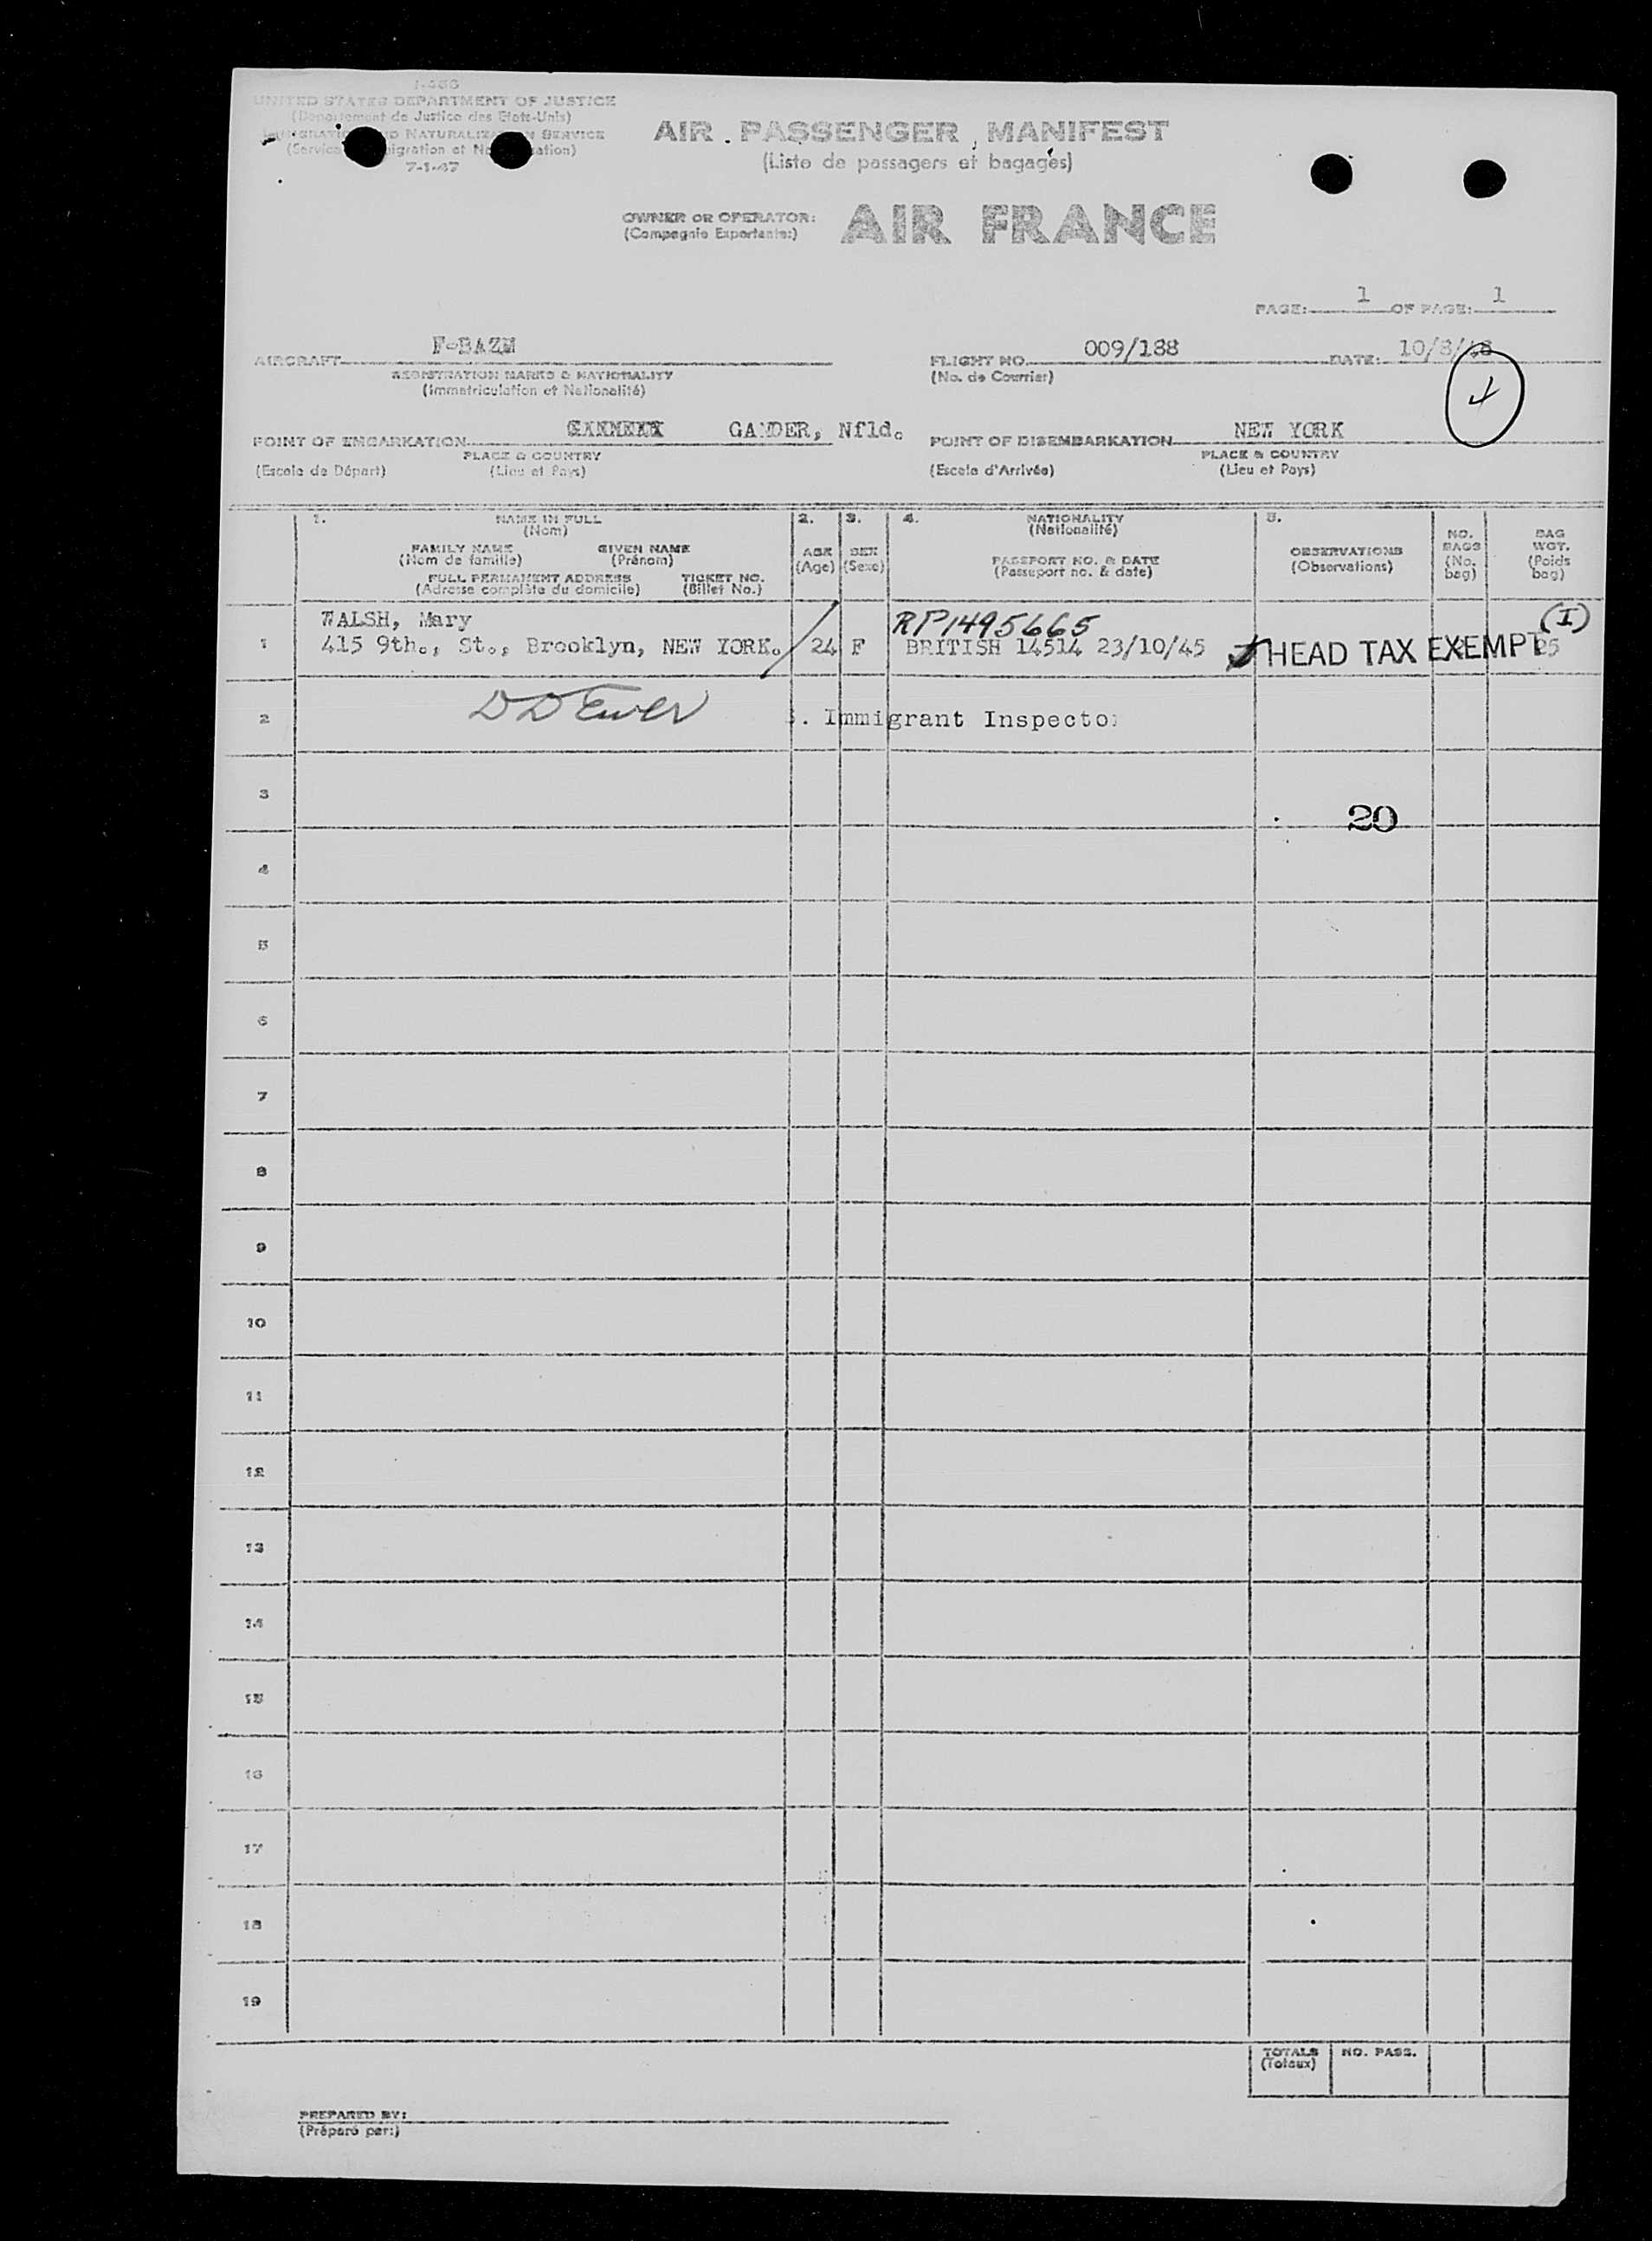 I-466
UNITED STATES DEPARTMENT OF JUSTICE
(Département de Justice des Etats-Unis)
NATURALIZATION SERVICE
(Service
7-1-47
AIR PASSENGER MANIFEST
(Liste de passagers et bagages)
OWNER OR OPERATOR: AIR FRANCE
(Compagnie Exportante:)
PAGE: 1 OF PAGE: 1
AIRCRAFT F-BAZM FLIGHT NO. 009/188 DATE: 10/8/48
REGISTRATION MARKS & NATIONALITY (No. de Courrier)
(Immatriculation et Nationalité)
POINT OF EMBARKATION GANDER, Nfld. POINT OF DISEMBARKATION NEW YORK
PLACE & COUNTRY PLACE & COUNTRY
(Escale de Départ) (Lieu et Pays) (Escale d'Arrivée) (Lieu et Pays)
1. NAME IN FULL 2. 3. 4. NATIONALITY 5. NO. BAG
(Nom) (Nationalité) BAGS WGT.
FAMILY NAME GIVEN NAME AGE SEX PASSPORT NO. & DATE OBSERVATIONS (No. (Poids
(Nom de famille) (Prénom) (Age) (Sexe) (Passeport no. & date) (Observations) bag) bag)
FULL PERMANENT ADDRESS TICKET NO.
(Adresse complète du domicile) (Billet No.)
WALSH, Mary RP1495665 (I)
1 415 9th., St., Brooklyn, NEW YORK. 24 F BRITISH 14514 23/10/45 HEAD TAX EXEMPT 25
2 . Immigrant Inspector
3 20
4
5
6
7
8
9
10
11
12
13
14
15
16
17
18
19
TOTALS NO. PASS.
(Totaux)
PREPARED BY:
(Préparé par:)